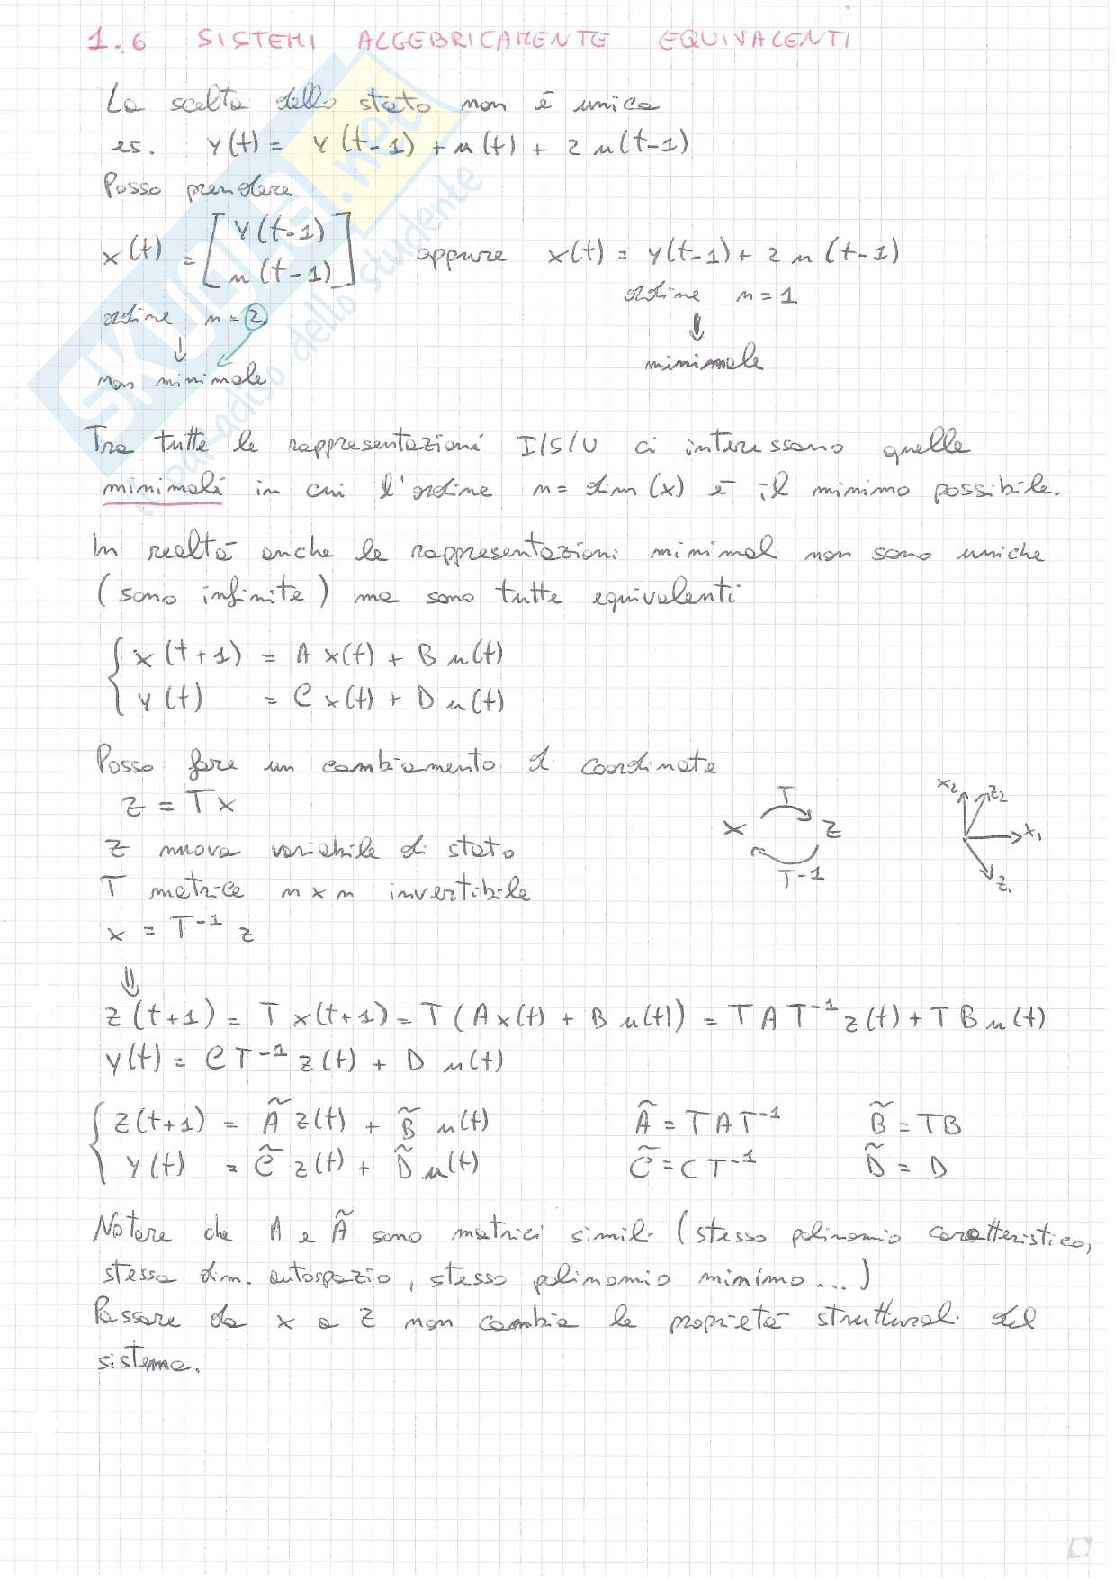 1.6 SISTEMI ALGEBRICAMENTE EQUIVALENTI
La scelta dello stato non è unica
es. y(t) = y(t-1) + u(t) + 2u(t-1)
Posso prendere
x(t) = [y(t-1) u(t-1)] oppure x(t) = y(t-1) + 2u(t-1)
ordine n = 2 ordine n = 1
↓ ⇓
non minimale minimale
Tra tutte le rappresentazioni I/S/U ci interessano quelle
minimali in cui l'ordine n = dim(x) è il minimo possibile.
In realtà anche le rappresentazioni minimal non sono uniche
(sono infinite) ma sono tutte equivalenti
{ x(t+1) = A x(t) + B u(t)
y(t) = C x(t) + D u(t)
Posso fare un cambiamento di coordinate
z = Tx
z nuova variabile di stato
T matrice n x n invertibile
x = T⁻¹ z
x T z T-1
x2 z2 x1 z1
⇓
z(t+1) = T x(t+1) = T(Ax(t) + B u(t)) = TAT⁻¹z(t) + TBu(t)
y(t) = CT⁻¹z(t) + D u(t)
{ z(t+1) = Ã z(t) + B̃ u(t) Ã = TAT⁻¹ B̃ = TB
y(t) = C̃ z(t) + D̃ u(t) C̃ = CT⁻¹ D̃ = D
Notare che A e Ã sono matrici simili (stesso polinomio caratteristico,
stessa dim. autospazio, stesso polinomio minimo...)
Passare da x a z non cambia le proprietà strutturali del
sistema.
SKUOLA.net
dello studente